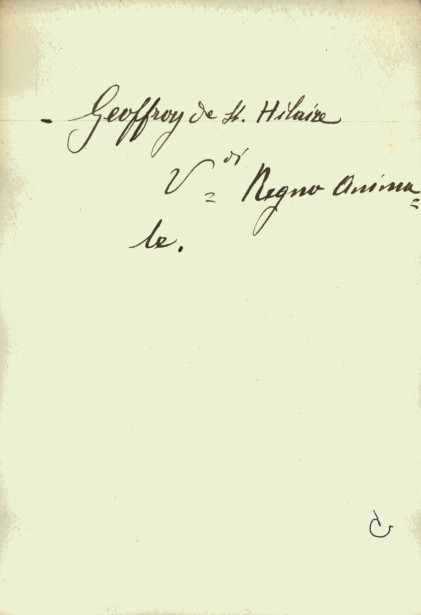 - Geoffroy de St. Hilaire
V=di Regno Anima=
le.